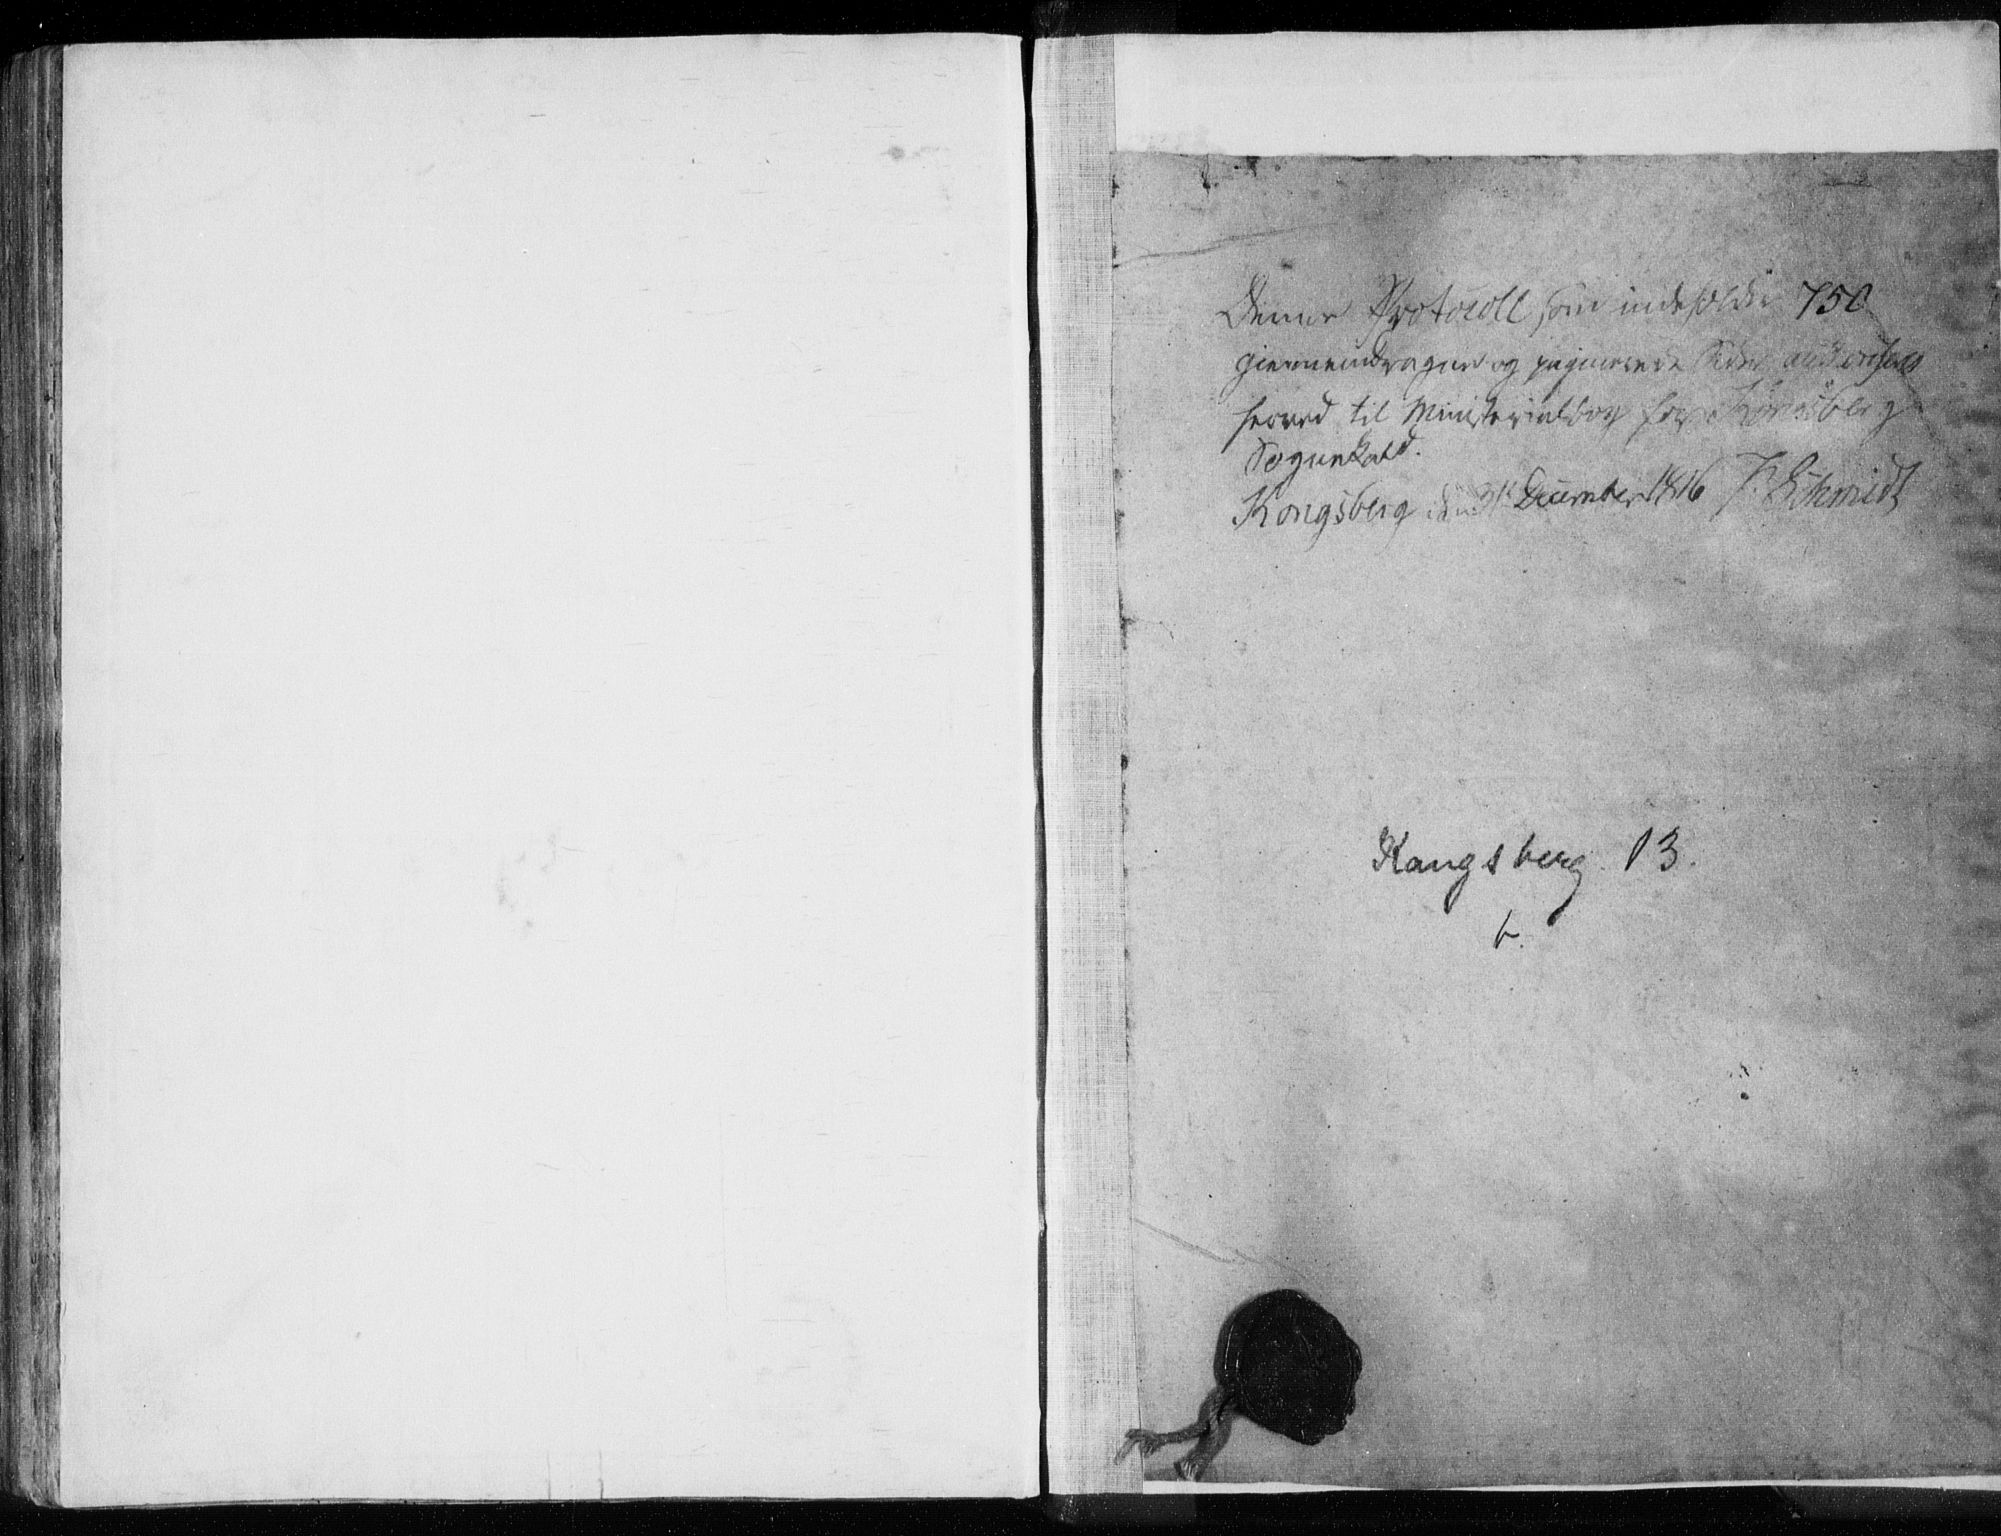 Denne Protocoll som indeholder 750
giennemdragne og paginerede Sider authoriseres
herved til Ministerialbog for Kongsberg
Sognekald.
Kongsberg den 31 December 1816 F. Schmidt
Kongsberg 13.
b.